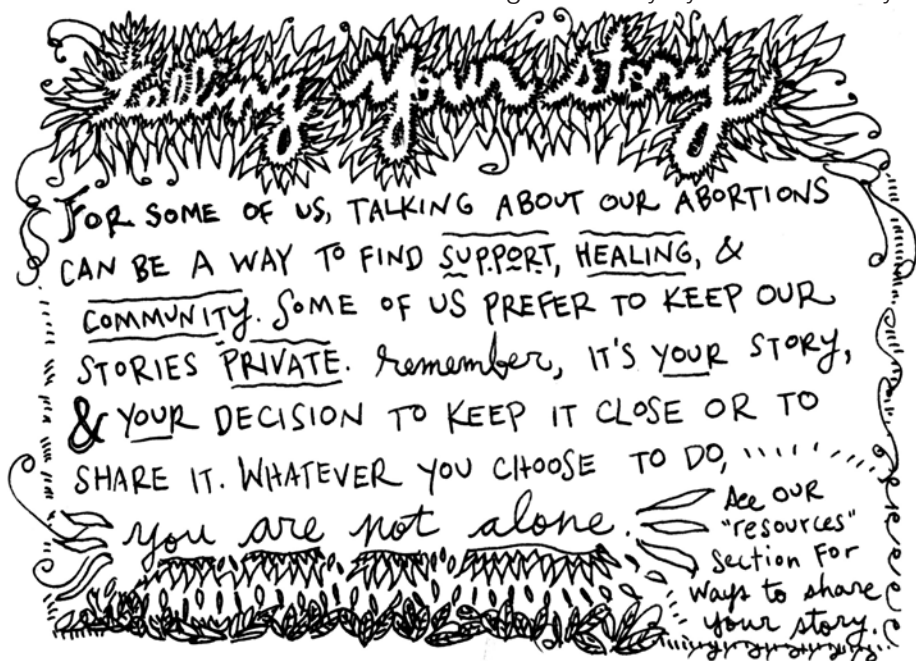 telling your story
FOR SOME OF US, TALKING ABOUT OUR ABORTIONS
CAN BE A WAY TO FIND SUPPORT, HEALING, &
COMMUNITY. SOME OF US PREFER TO KEEP OUR
STORIES PRIVATE. remember, IT'S YOUR STORY,
& YOUR DECISION TO KEEP IT CLOSE OR TO
SHARE IT. WHATEVER YOU CHOOSE TO DO,
you are not alone.
See OUR
"resources"
Section For
Ways to share
your story.